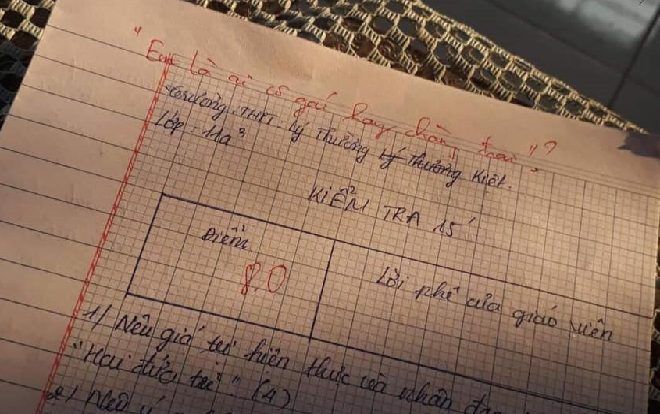 "Em là ai cô gái hay chàng trai"?
Trường THPT Lý Thường Lý Thường Kiệt.
Lớp: 11a3
KIỂM TRA 15'
Điểm
8.0
Lời phê của giáo viên
1/ Nêu giá trị hiện thực và nhân đạ
"Hai đứa trẻ". (4)
2/ Nêu